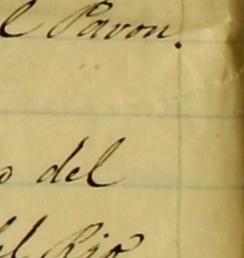 l Pavon.
o del
el Rio